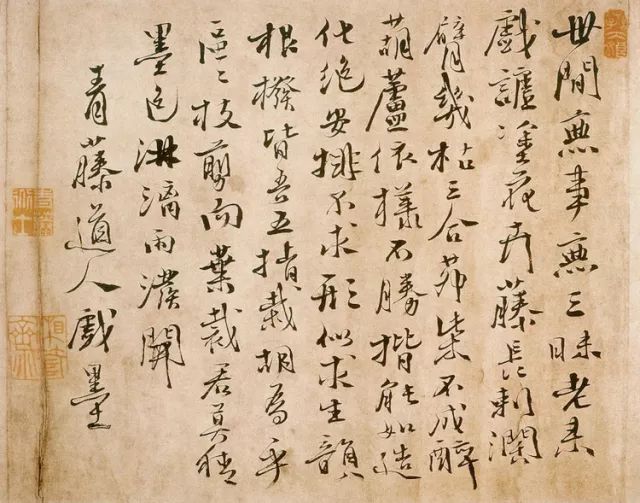 世間無事無三昧老來
戲謔塗花卉藤長刺闊
臂幾枯三合茆柴不成醉
葫蘆依樣不勝揩能如造
化絕安排不求形似求生韻
根撥皆吾五指栽胡為乎
區々枝剪而葉裁君莫猜
墨色淋漓雨潑開
青藤道人戲墨